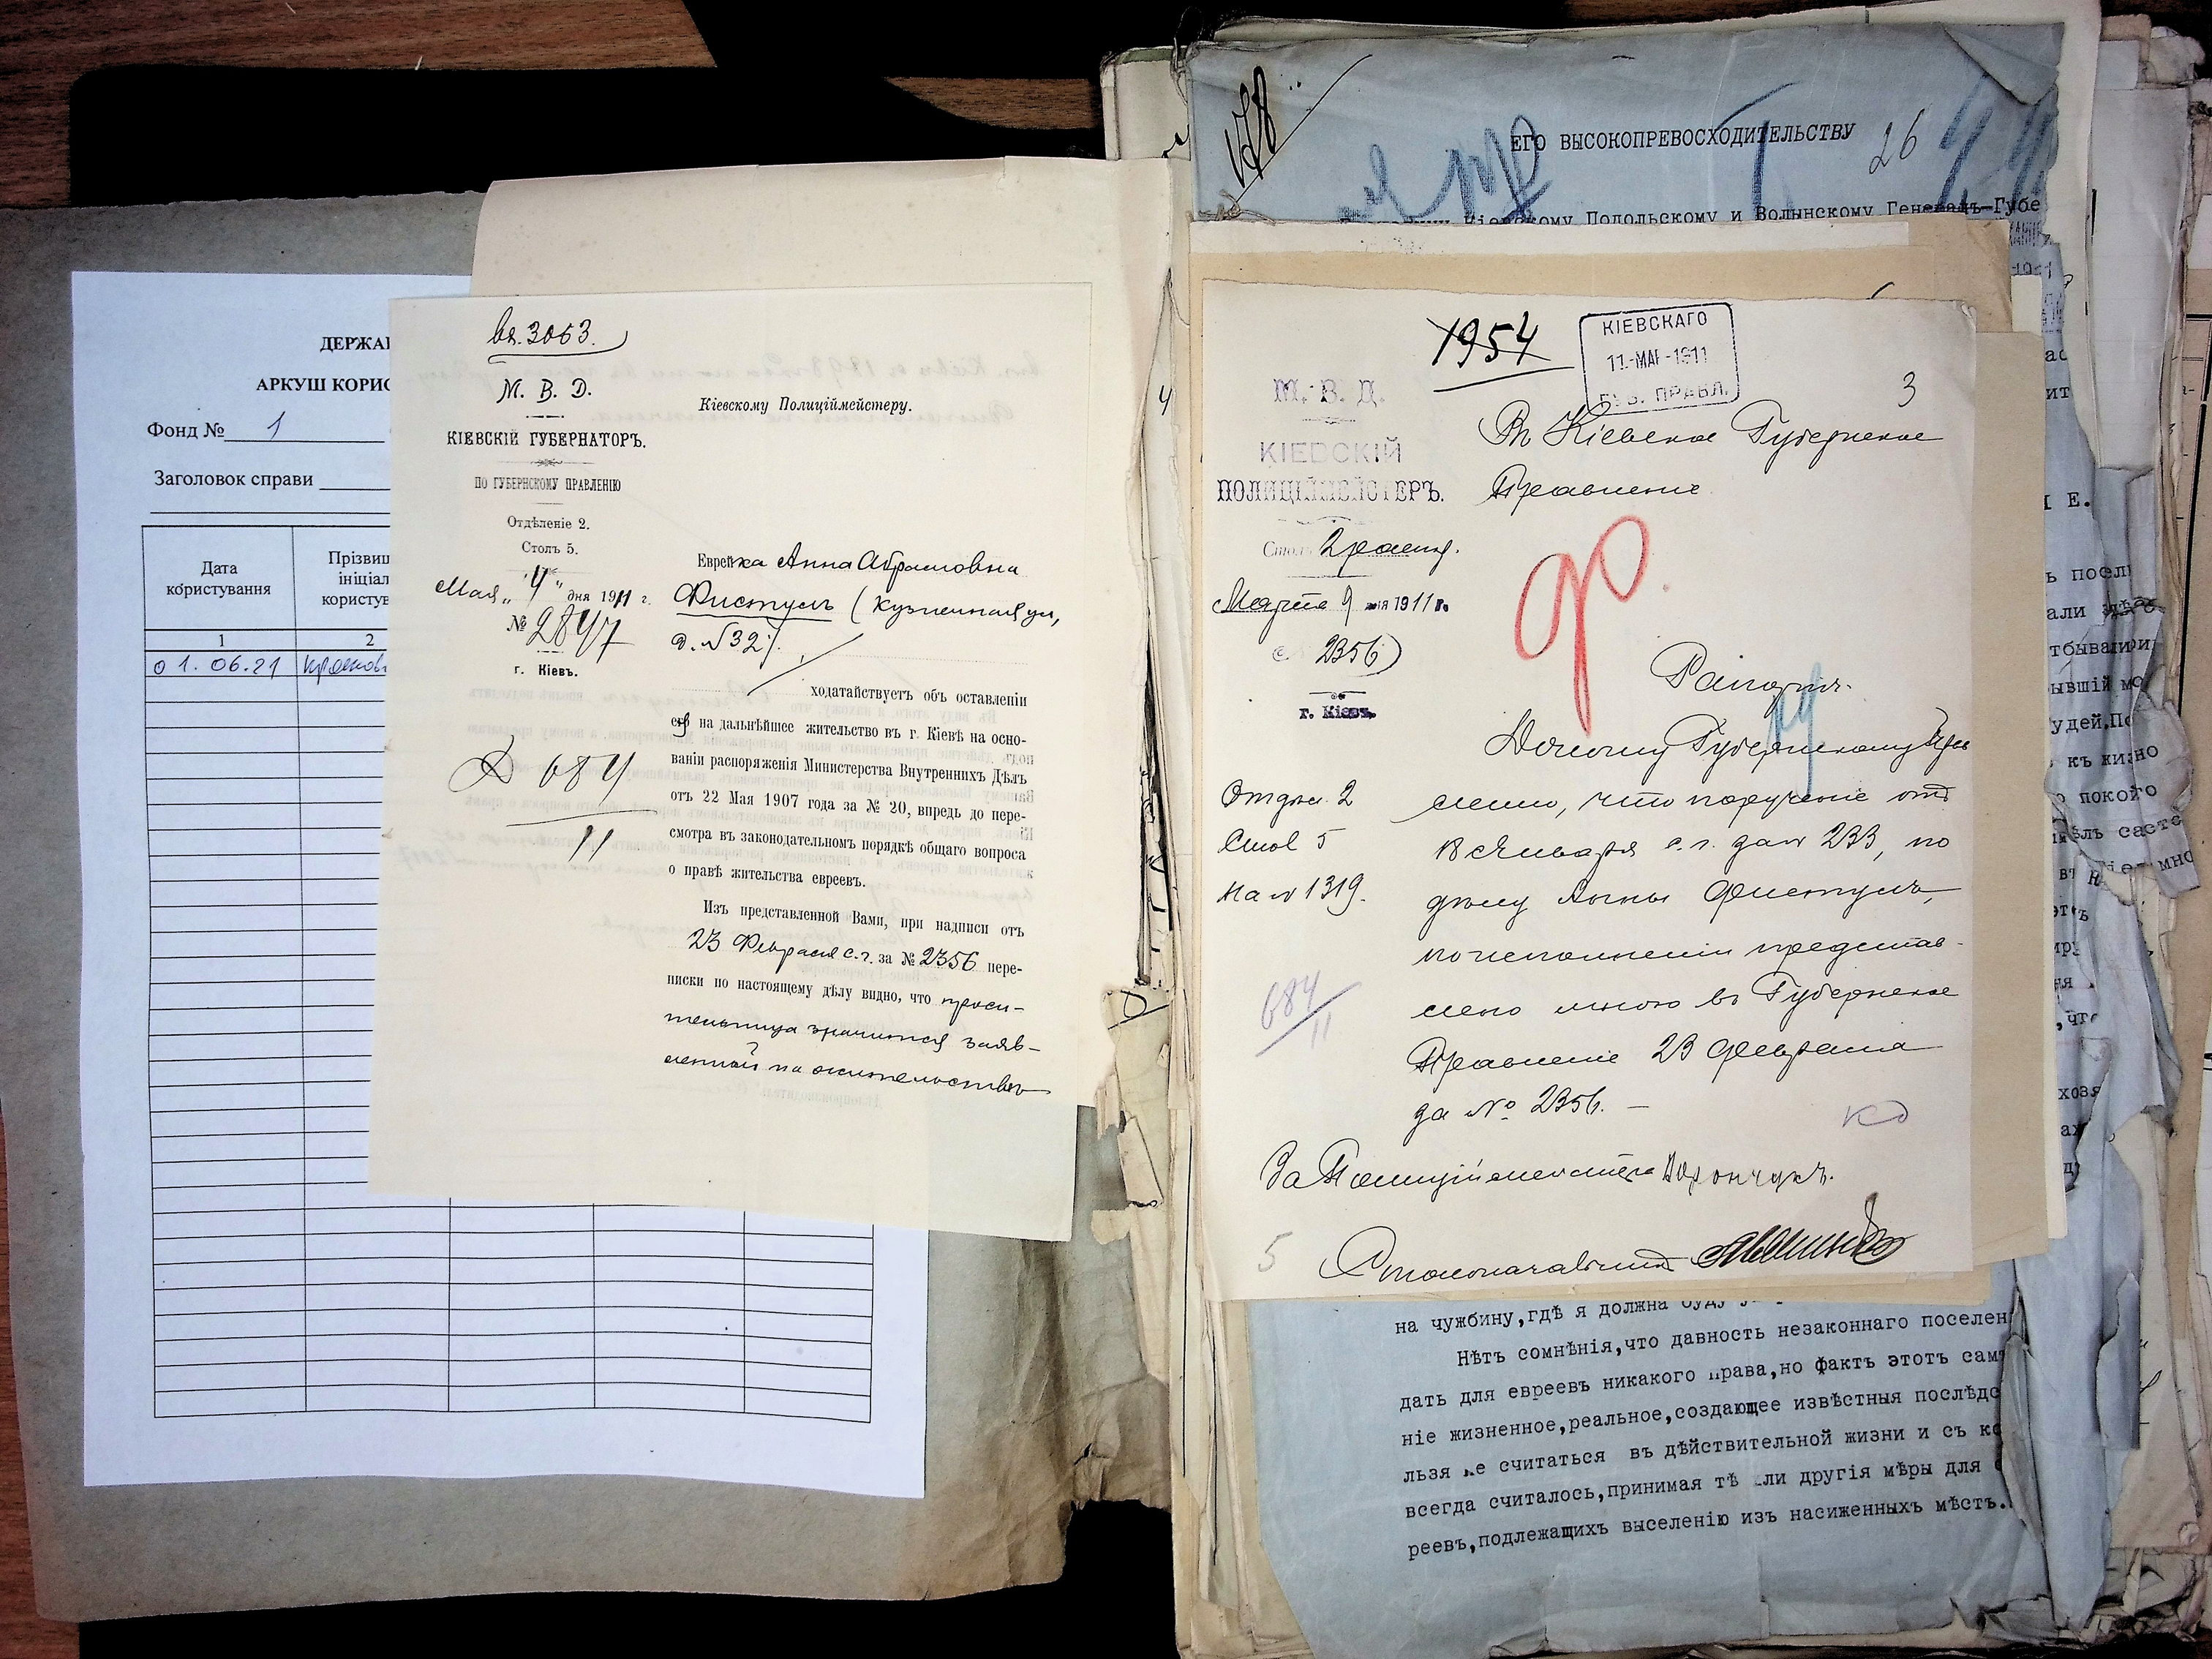 ДЕРЖА
АРКУШ КОРИС
Фонд № 1
Заголовок справи
Дата користування
Прізвищ
ініціал
користув
1
2
01.06.21
вх. 3063.
М. В. Д.
КІЕВСКІЙ ГУБЕРНАТОРЪ.
ПО ГУБЕРНСКОМУ ПРАВЛЕНІЮ
Отдѣленіе 2.
Столъ 5.
Мая „4“ дня 1911 г.
№ 2847
г. Кіевъ.
684
11
Кіевскому Полиціймейстеру.
Еврейка Анна Абрамовна
Фистуль (Кузнечная ул,
д. №32).
ходатайствуетъ объ оставленіи
ея на дальнѣйшее жительство въ г. Кіевѣ на осно-
ваніи распоряженія Министерства Внутреннихъ Дѣлъ
отъ 22 Мая 1907 года за № 20, впредь до пере-
смотра въ законодательномъ порядкѣ общаго вопроса
о правѣ жительства евреевъ.
Изъ представленной Вами, при надписи отъ
23 Февраля с.г. за № 2356 пере-
писки по настоящему дѣлу видно, что проси-
тельница значится заяв-
ленной по жительству
4
ЕГО ВЫСОКОПРЕВОСХОДИТЕЛЬСТВУ
26
Кіевскому Подольскому и Волынскому Генералъ-Губе
1954
КІЕВСКАГО
11.-МАР-1911
ГУБ. ПРАВЛ.
3
М. В. Д.
КІЕВСКІЙ
ПОЛИЦІЙМЕЙСТЕРЪ.
Стол
Марта 9 дня 1911 г.
2356
г. Кіевъ.
Отдѣл. 2
Стол 5
На № 1319.
684
11
Въ Кіевское Губернское
Правленіе
Рапортъ.
Доношу Губернскому Прав
ленію, что порученіе отъ
18 Января с. г. за № 233, по
дѣлу Анны Фистуль,
по исполненіи представ-
лено мною въ Губернское
Правленіе 23 Февраля
за № 2356. —
За Полиціймейстера
Столоначальникъ
5
на чужбину,гдѣ я должна буду
Нѣтъ сомнѣнія,что давность незаконнаго поселен
дать для евреевъ никакого права,но фактъ этотъ сам
ніе жизненное,реальное,создающее извѣстныя послѣдс
льзя не считаться въ дѣйствительной жизни и съ ко
всегда считалось,принимая тѣ или другія мѣры для
реевъ,подлежащихъ выселенію изъ насиженныхъ мѣстъ.